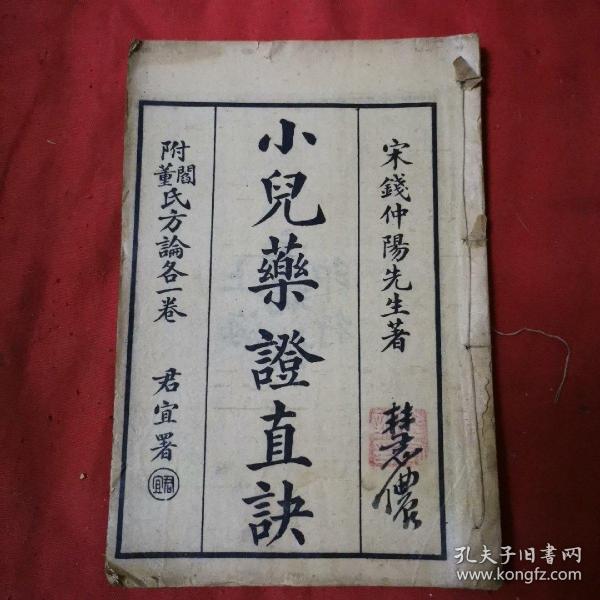 宋錢仲陽先生著
小兒藥證直訣
附閻董氏方論各一卷
君宜署
君宜
孔夫子旧書网
www.kongfz.com